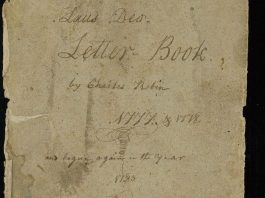 Laus Deo.
Letter Book.
by Charles Robin
& 1778
and begun again in the Year
1783